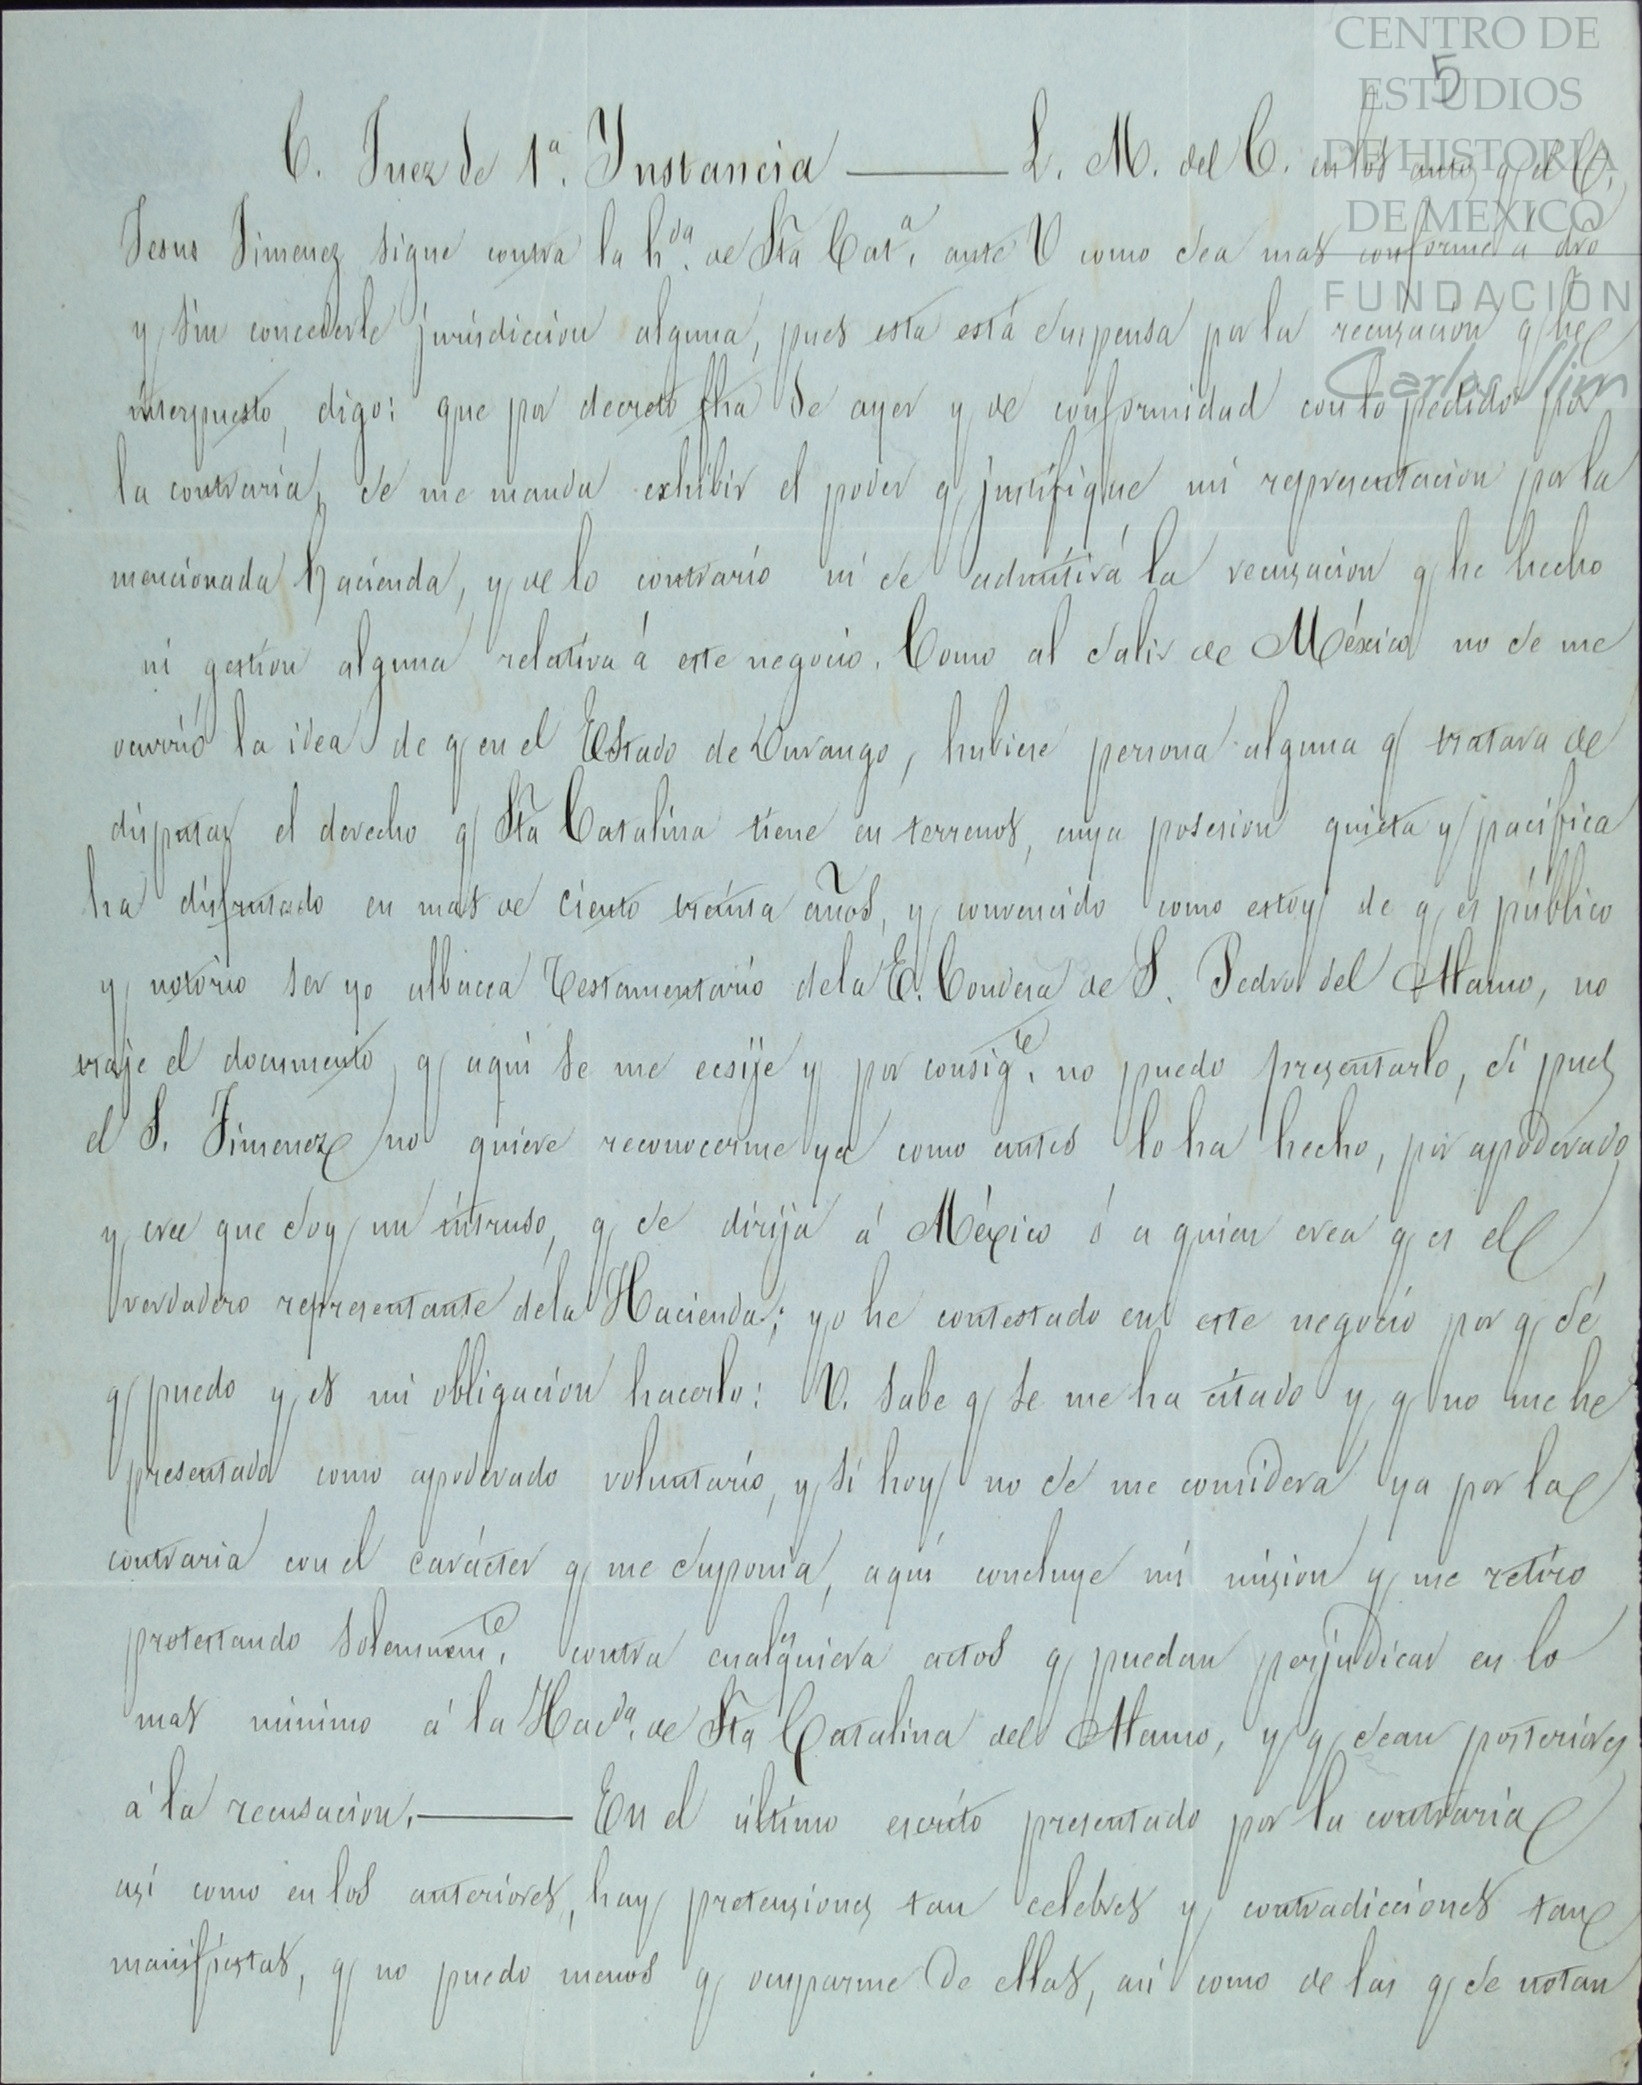 CENTRO DE
ESTUDIOS
DE HISTORIA
DE MEXICO
FUNDACION
Carlos Slim
5
C. Juez de 1ª. Instancia ——— L. M. del C. en los autos q. el C.
Jesus Jimenez sigue contra la hda. de Sta Cata. ante V como sea mas conforme a dro
y sin concederle jurisdiccion alguna, pues esta está suspensa por la recusacion q. he
interpuesto, digo: que por decreto fha de ayer y de conformidad con lo pedido por
la contraria, se me manda exhibir el poder q. justifique mi representacion por la
mencionada hacienda, y de lo contrario ni se admitirá la recusacion q. he hecho
ni gestion alguna relativa á este negocio. Como al salir de México no se me
ocurrió la idea de q. en el Estado de Durango, hubiese persona alguna q. tratara de
disputar el derecho q. Sta Catalina tiene en terrenos, cuya posesion quieta y pacifica
ha disfrutado en mas de ciento treinta años, y convencido como estoy de q. es público
y notorio ser yo albacea Testamentario de la E. Condesa de S. Pedro del Alamo, no
traje el documento q. aqui se me ecsije y por consigte. no puedo presentarlo, si pues
el S. Jimenez no quiere reconocerme ya como antes lo ha hecho, por apoderado
y cree que soy un intruso, q. se dirija á México ó a quien crea q. es el
verdadero representante de la Hacienda; yo he contestado en este negocio por q. sé
q. puedo y es mi obligacion hacerlo: V. sabe q. se me ha citado y q. no me he
presentado como apoderado voluntario, y si hoy no se me considera ya por la
contraria con el carácter q. me suponia, aquí concluye mi mision y me retiro
protestando solemneme. contra cualesquiera actos q. puedan perjudicar en lo
mas minimo á la Hacda. de Sta Catalina del Alamo, y q. sean posteriores
á la recusacion. ——— En el último escrito presentado por la contraria
asi como en los anteriores, hay pretensiones tan celebres y contradicciones tan
manifiestas, q. no puedo menos q. ocuparme de ellas, asi como de las q. se notan